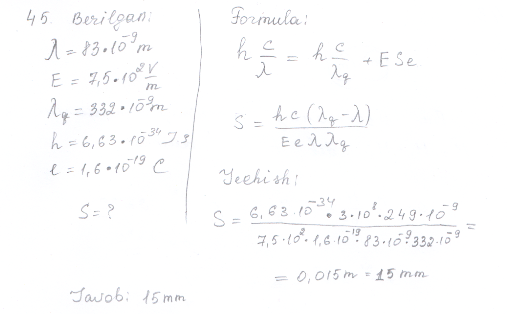 45. Berilgan:
λ = 83·10⁻⁹ m
E = 7,5·10² V/m
λq = 332·10⁻⁹ m
h = 6,63·10⁻³⁴ J s
e = 1,6·10⁻¹⁹ C
S = ?
Formula:
h c/λ = h c/λq + E S e
S = hc(λq - λ) / E e λ λq
Yechish:
S = 6,63·10⁻³⁴ · 3·10⁸ · 249·10⁻⁹ / 7,5·10² · 1,6·10⁻¹⁹ · 83·10⁻⁹ · 332·10⁻⁹ =
= 0,015 m = 15 mm
Javob: 15 mm